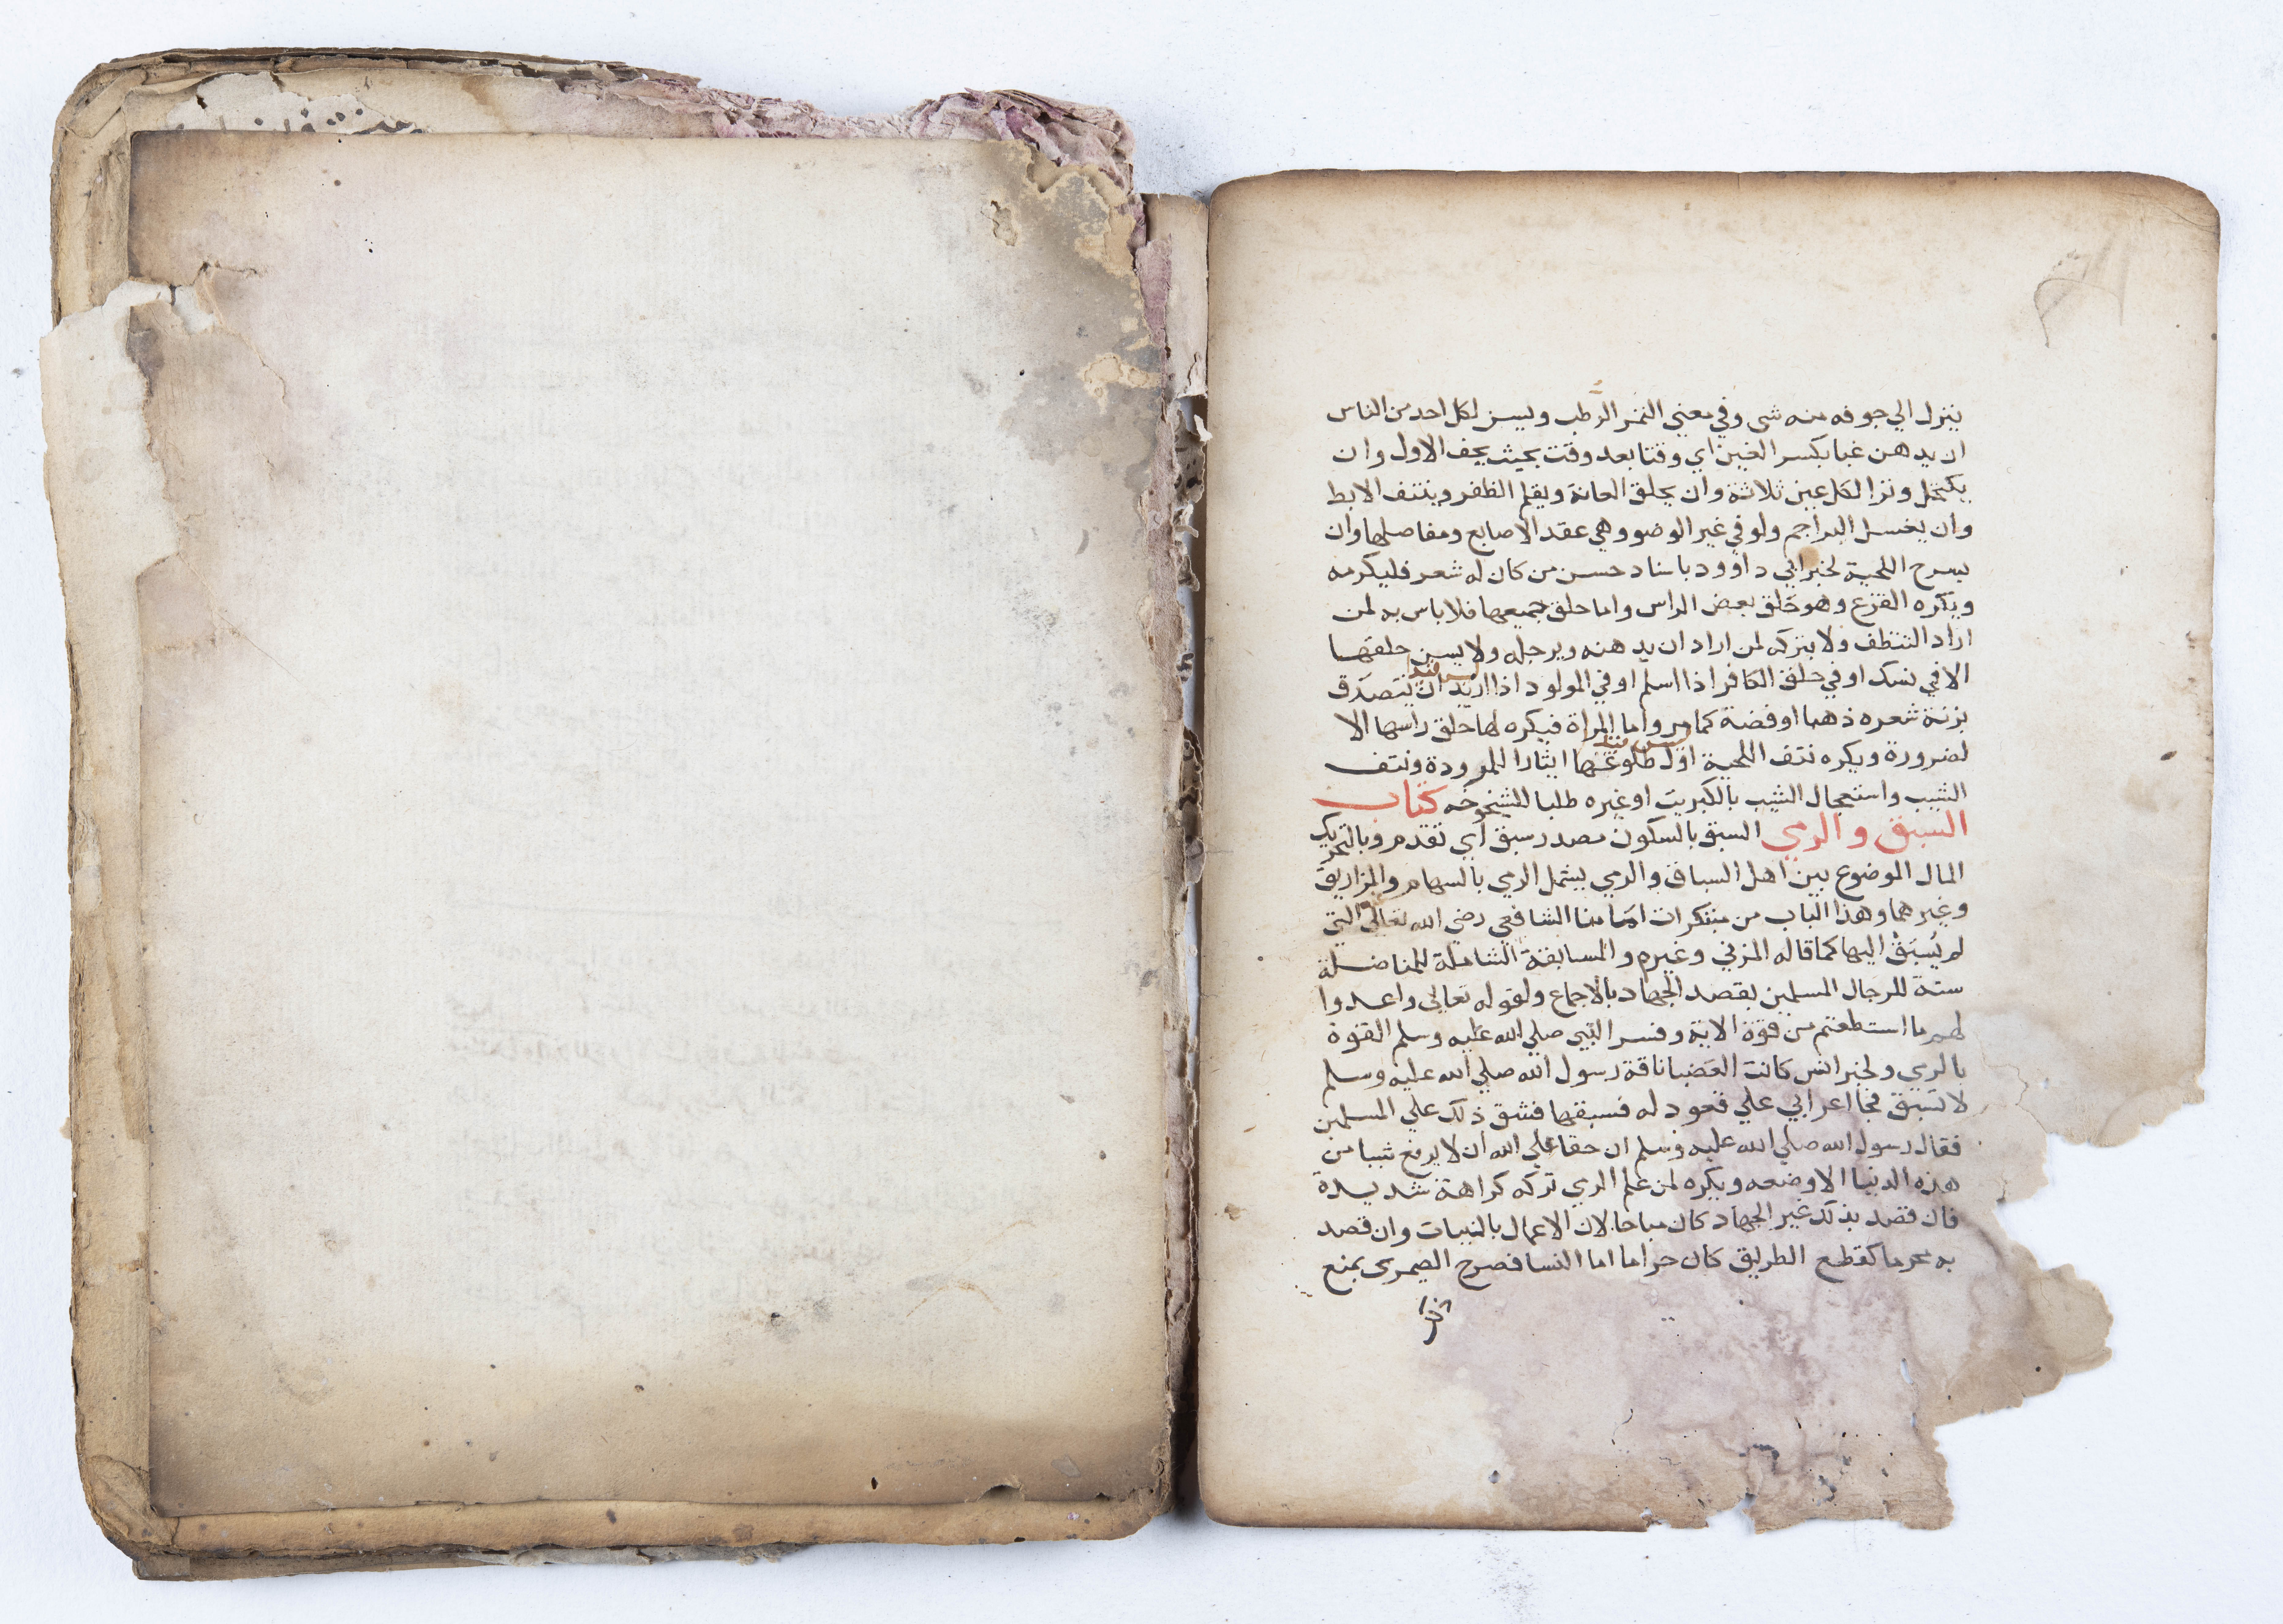 ينزل الي جوفه منه شي وفي معني التمر الرطب وليسن لكل احد من الناس
ان يدهن غبا بكسر الغين اي وقتا بعد وقت بحيث يجف الاول وان
يكتحل وترا لكل عين ثلاثة وان يحلق العانة ويقلم الظفر وينتف الابط
وان يغسل البراجم ولو في غير الوضو وهي عقد الاصابع ومفاصلها وان
يسرح اللحية لخبر ابي داوود باسناد حسن من كان له شعر فليكرمه
ويكره القزع وهو حلق بعض الراس واما حلق جميعها فلا باس به لمن
اراد التنظف ولا بتركه لمن اراد ان يدهنه ويرجله ولا يسن حلقها
الا في نسك او في حلق الكافر اذا اسلم او في المولود اذا اريد ان يتصدق
بزنة شعره ذهبا او فضة كما مر واما المراة فيكره لها حلق راسها الا
لضرورة ويكره نتف اللحية اول طلوعها ايثارا للمرودة ونتف
الشيب واستعجال الشيب بالكبريت او غيره طلبا للشيخوخه كتاب
السبق والرمي السبق بالسكون مصدر سبق اي تقدم وبالتحريك
المال الموضوع بين اهل السباق والرمي يشمل الرمي بالسهام والمزاريق
وغيرهما وهذا الباب من مبتكرات امامنا الشافعي رضي الله تعالي التي
لم يُسبَق اليها كما قاله المزني وغيره والمسابقة الشاملة للمناضلة
سنة للرجال المسلمين بقصد الجهاد بالاجماع ولقوله تعالى واعدوا
لهم ما استطعتم من قوة الاية وفسر النبي صلي الله عليه وسلم القوة
بالرمي ولخبر انس كانت العضبا ناقة رسول الله صلي الله عليه وسلم
لا تسبق فجا اعرابي علي قعود له فسبقها فشق ذلك علي المسلمين
فقال رسول الله صلي الله عليه وسلم ان حقا علي الله ان لا يرفع شيا من
هذه الدنيا الا وضعه ويكره لمن علم الرمي تركه كراهة شديدة
فان قصد بذلك غير الجهاد كان مباحا لان الاعمال بالنيات وان قصد
به محرما كقطع الطريق كان حراما اما النسا فصرح الصيمري بمنع